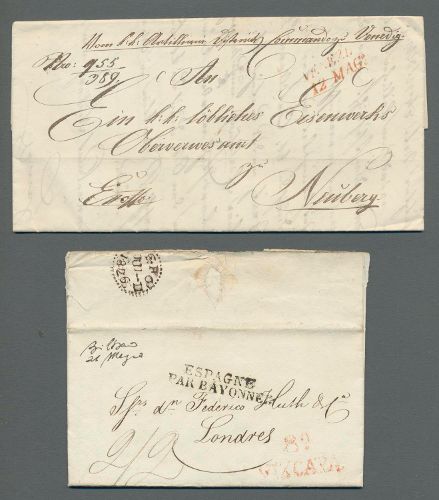 Vom k: k: Artillerie Distrikts Commando zu Venedig
Nro: 955
389
VENEZIA
12 MAG.
An
Ein k: k: löbliches Eisenwerks
Oberverwesamt
zu
Neuberg
Bilbao
21 Mayo
ESPAGNE
PAR BAYONNE
Sres dn Federico Huth & Co
Londres
2/2
VIZCAYA